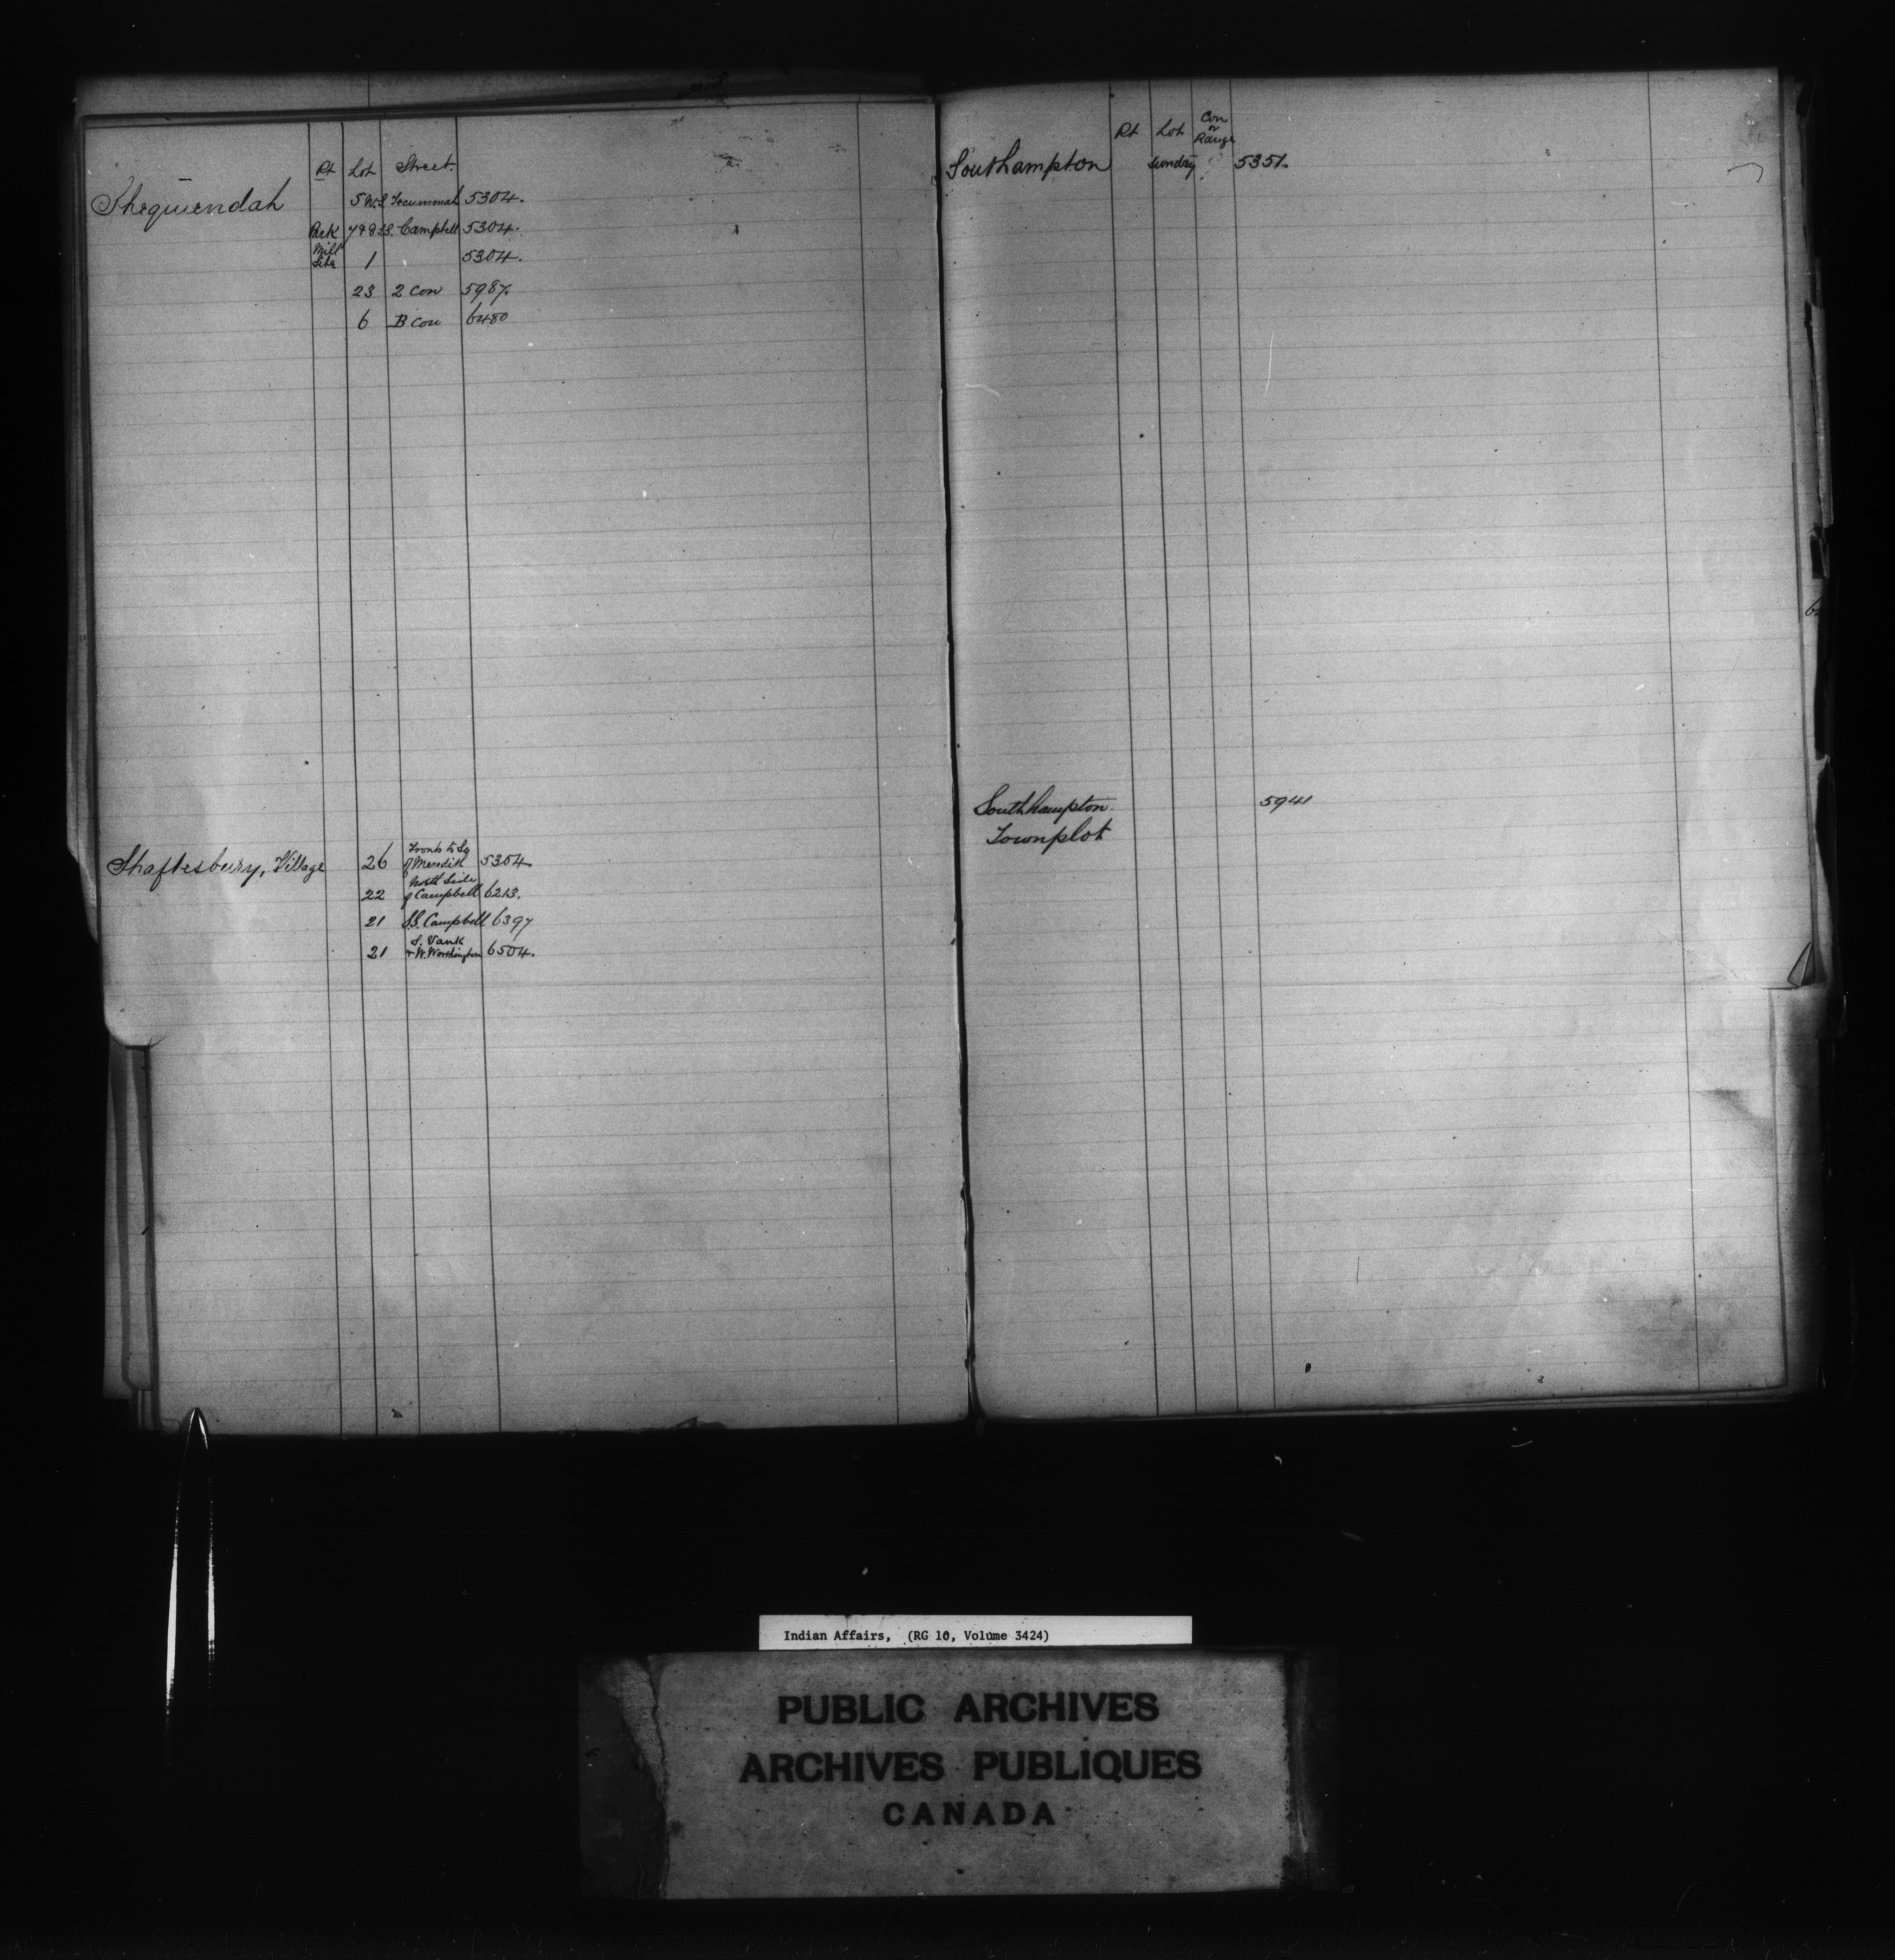 Pt Lot Street.
Sheguiendah 5 W.S Tecummah 5304.
Park 7 & 8 S.S. Campbell 5304.
Mill Site 1 5304.
23 2 Con 5987.
6 B Con 6480
Shaftesbury, Village 26 Fronts to Sq of Meredith 5304
22 North Side of Campbell 6213.
21 S.S. Campbell 6397
21 S. Vank & W. Worthington 6504.
Pt Lot Con or Range
Southampton Sundry 5351.
Southhampton. 5941
Townplot
Indian Affairs, (RG 10, Volume 3424)
PUBLIC ARCHIVES
ARCHIVES PUBLIQUES
CANADA